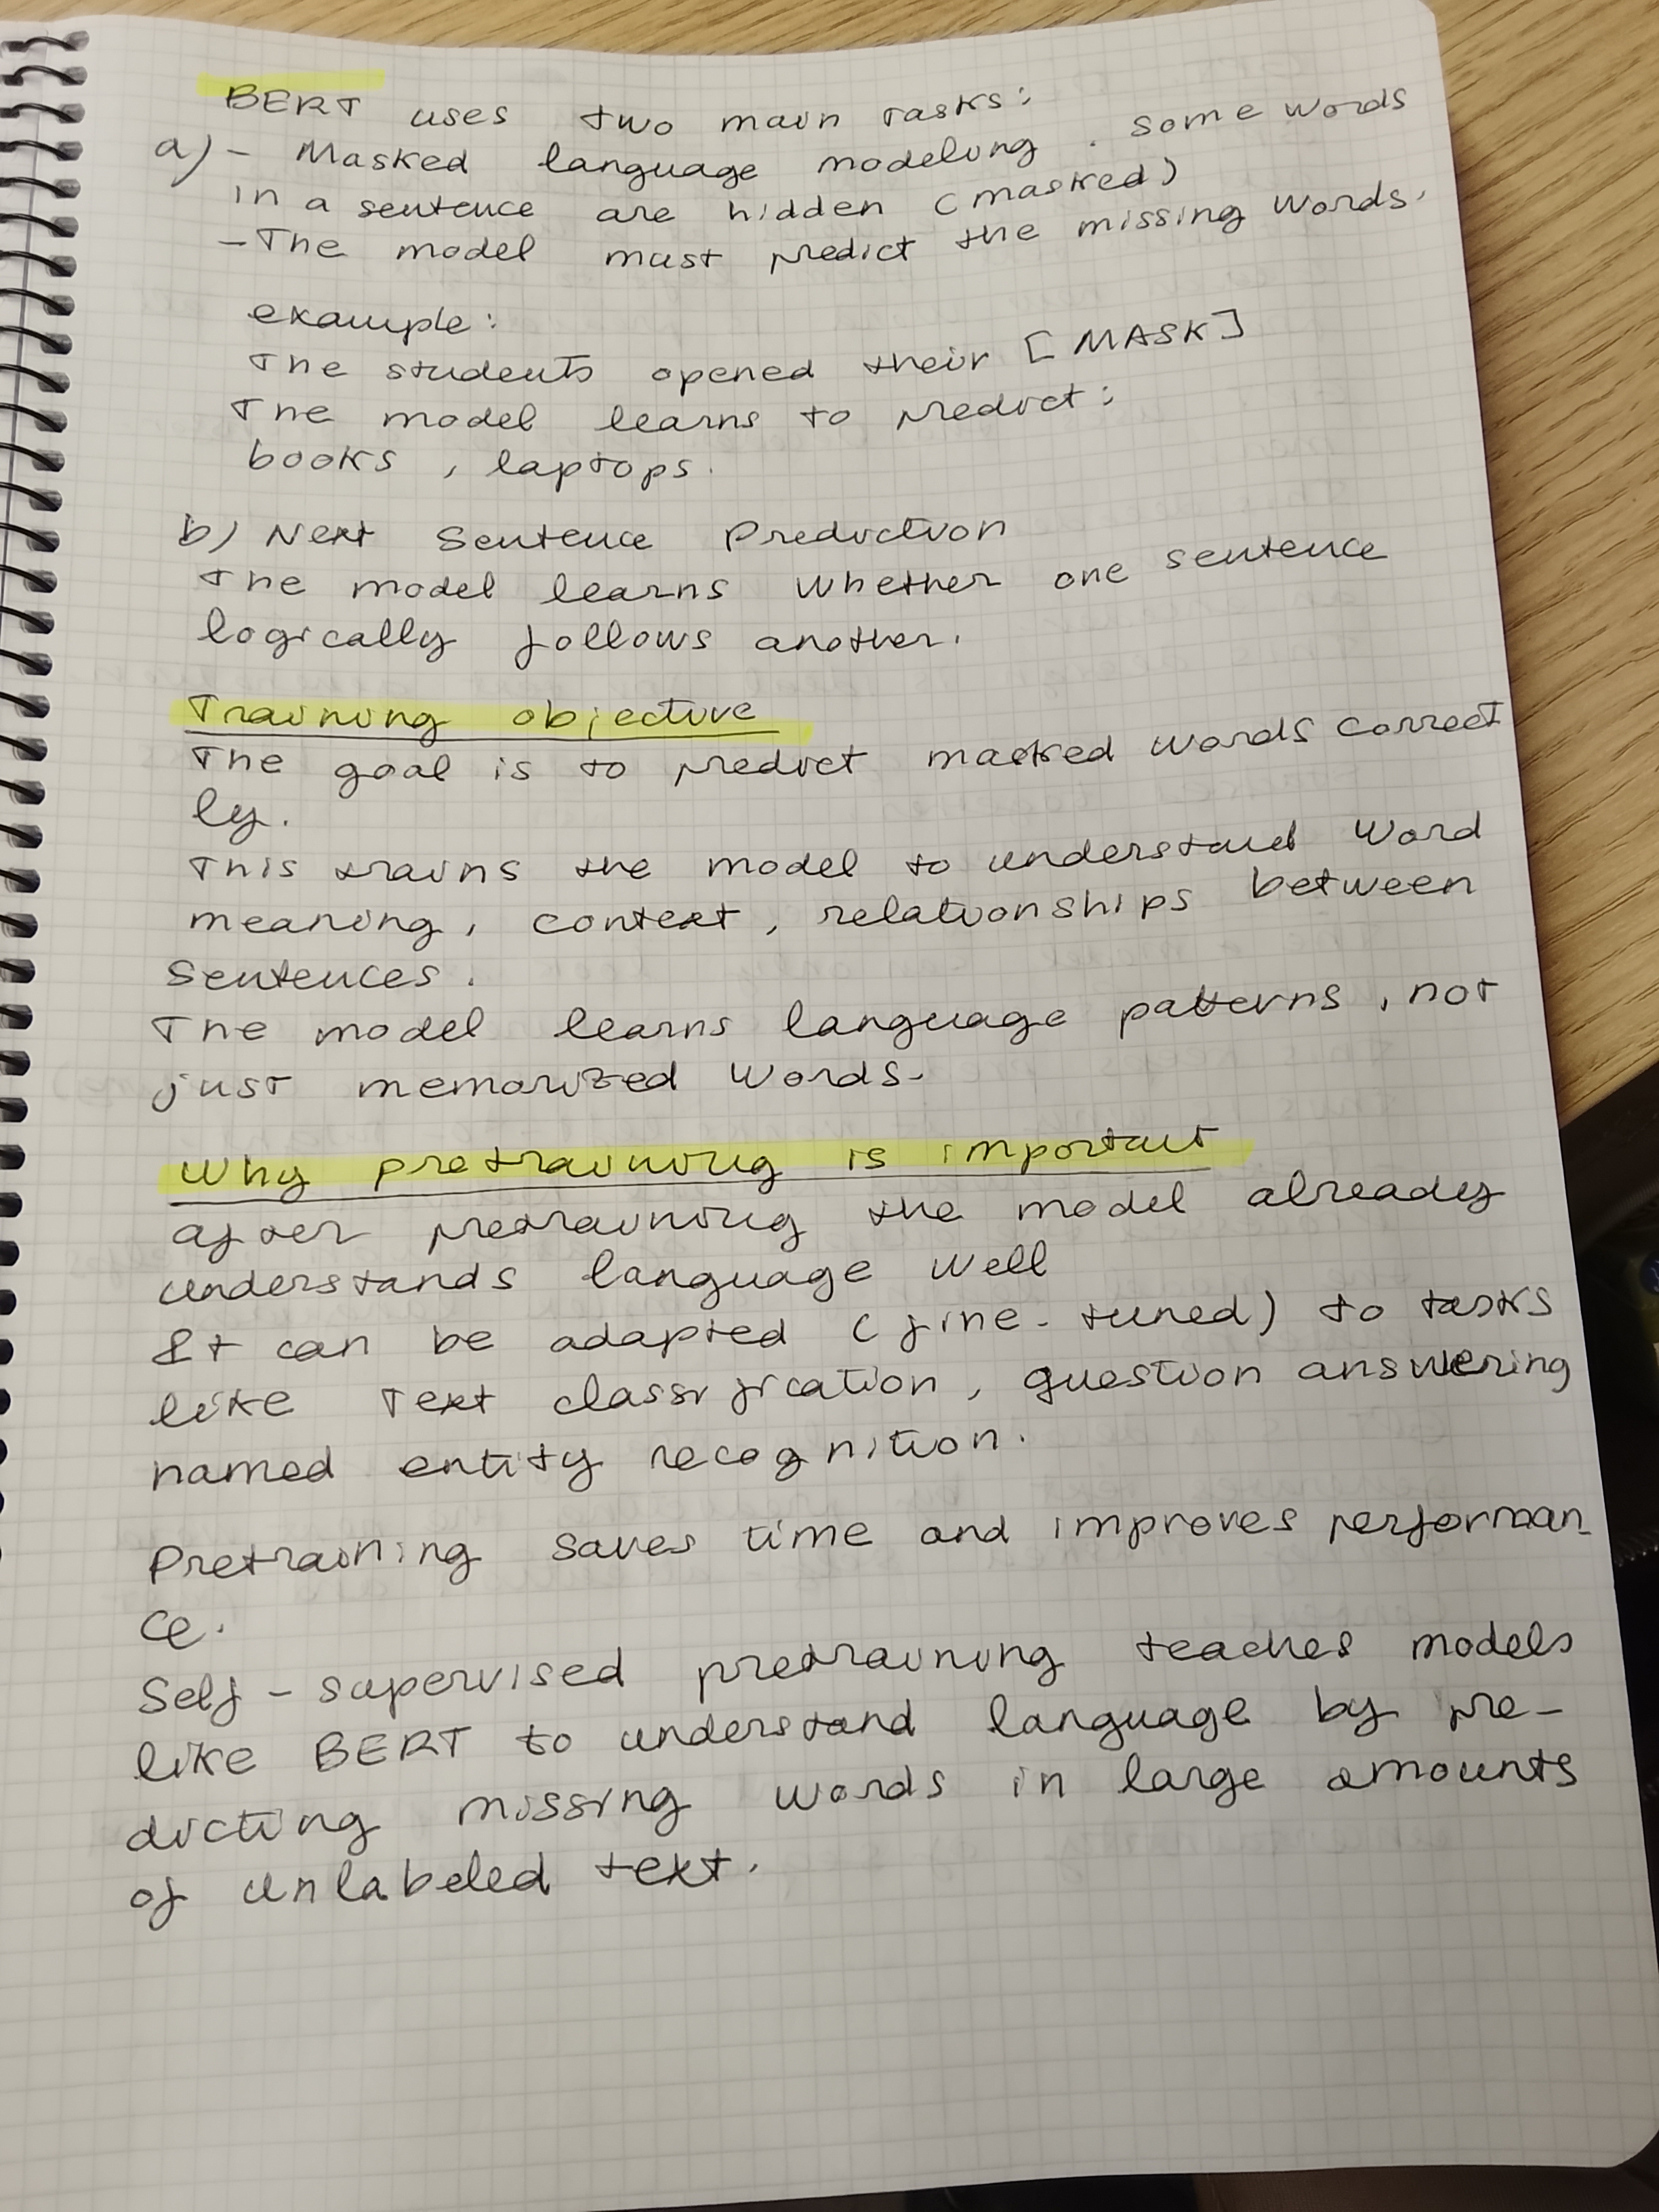 BERT uses two main tasks:
a) - Masked language modeling. Some words
in a sentence are hidden (masked)
- The model must predict the missing words.
example:
The students opened their [MASK]
The model learns to predict:
books, laptops.
b) Next Sentence Prediction
The model learns whether one sentence
logically follows another.
Training objective
The goal is to predict masked words correct
ly.
This trains the model to understand word
meaning, context, relationships between
sentences.
The model learns language patterns, not
just memorized words.
Why pretraining is important
after pretraining the model already
understands language well
It can be adapted (fine-tuned) to tasks
like text classification, question answering
named entity recognition.
Pretraining saves time and improves performan_
ce.
Self-supervised pretraining teaches models
like BERT to understand language by pre-
dicting missing words in large amounts
of unlabeled text.